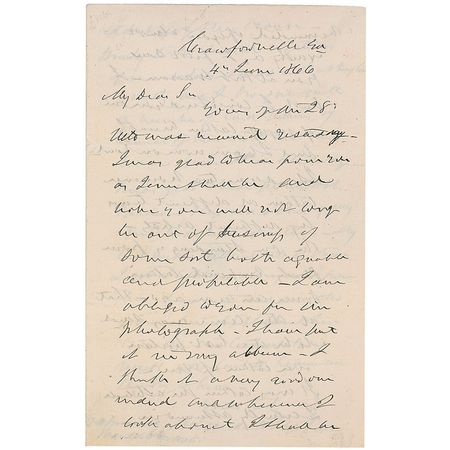 Crawfordville Ga
4th June 1866
My Dear Sir
Yours of the 28th
ulto was received yesterday -
I was glad to hear from you
as I ever shall be and
hope you will not long
be out of business of
some sort both agreeable
and profitable - I am
obliged to you for the
photograph. I have put
it in my album - I
think it a very good one
indeed and whenever I
look at it I shall be